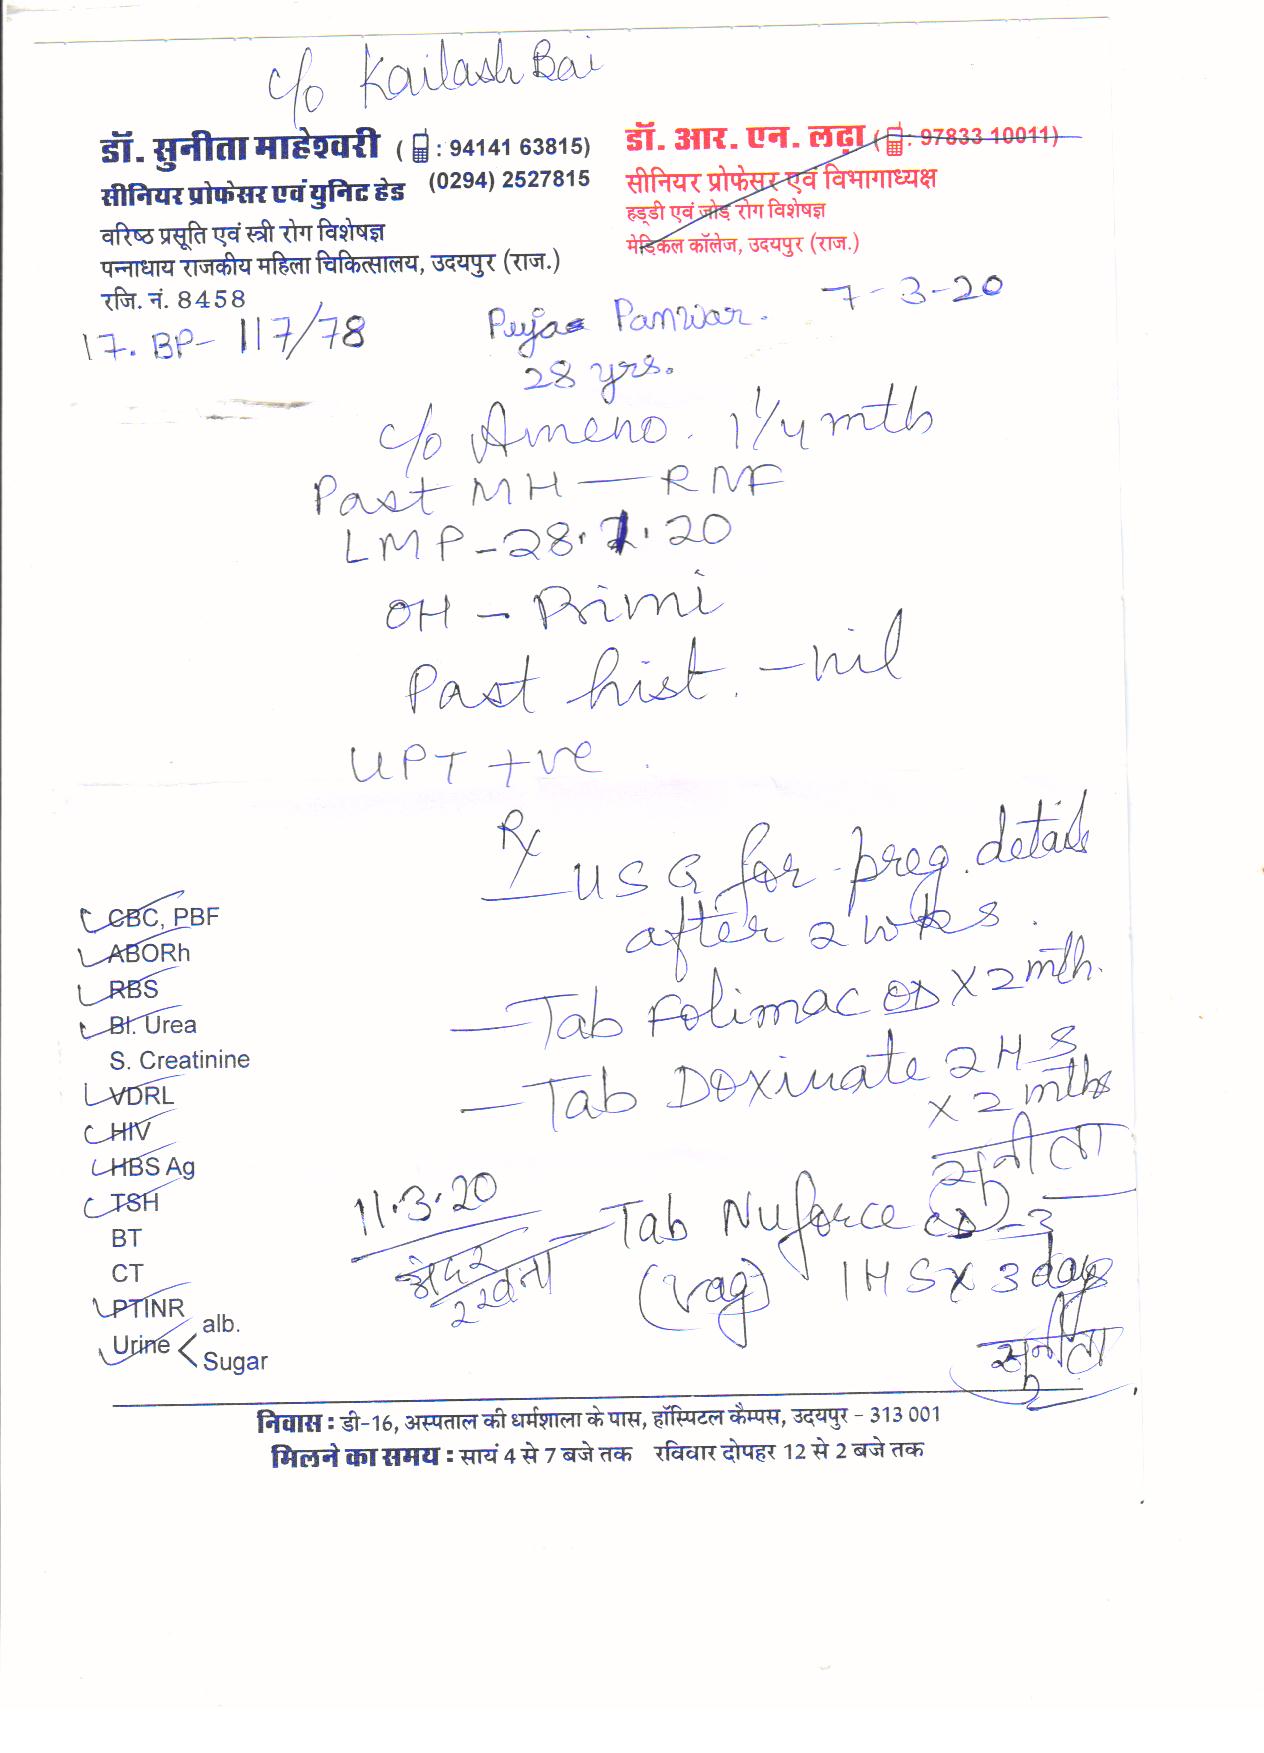 c/o Kailash Bai
डॉ. सुनीता माहेश्वरी ( : 94141 63815)
सीनियर प्रोफेसर एवं युनिट हेड (0294) 2527815
वरिष्ठ प्रसूति एवं स्त्री रोग विशेषज्ञ
पन्नाधाय राजकीय महिला चिकित्सालय, उदयपुर (राज.)
रजि. नं. 8458
डॉ. आर. एन. लढ़ा ( : 97833 10011)
सीनियर प्रोफेसर एवं विभागाध्यक्ष
हड्डी एवं जोड़ रोग विशेषज्ञ
मेडिकल कॉलेज, उदयपुर (राज.)
7-3-20
17. BP- 117/78
Puja Panwar.
28 yrs.
c/o Ameno. 1 1/4 mth
Past MH — RNF
LMP - 28.1.20
OH - Primi
Past hist. - nil
UPT +ve
Rx
— USG for preg. details
after 2 wks.
— Tab Folimac OD X 2 mth.
— Tab Doxinate 2 HS
X 2 mths
सुनीता
CBC, PBF
ABORh
RBS
Bl. Urea
S. Creatinine
VDRL
HIV
HBS Ag
TSH
BT
CT
PTINR
Urine < alb.
Sugar
11.3.20
अंदर
रखना
— Tab Nuforce CD-3
(vag) 1 HS X 3 days
सुनीता
निवास : डी-16, अस्पताल की धर्मशाला के पास, हॉस्पिटल कैम्पस, उदयपुर - 313 001
मिलने का समय : सायं 4 से 7 बजे तक रविवार दोपहर 12 से 2 बजे तक